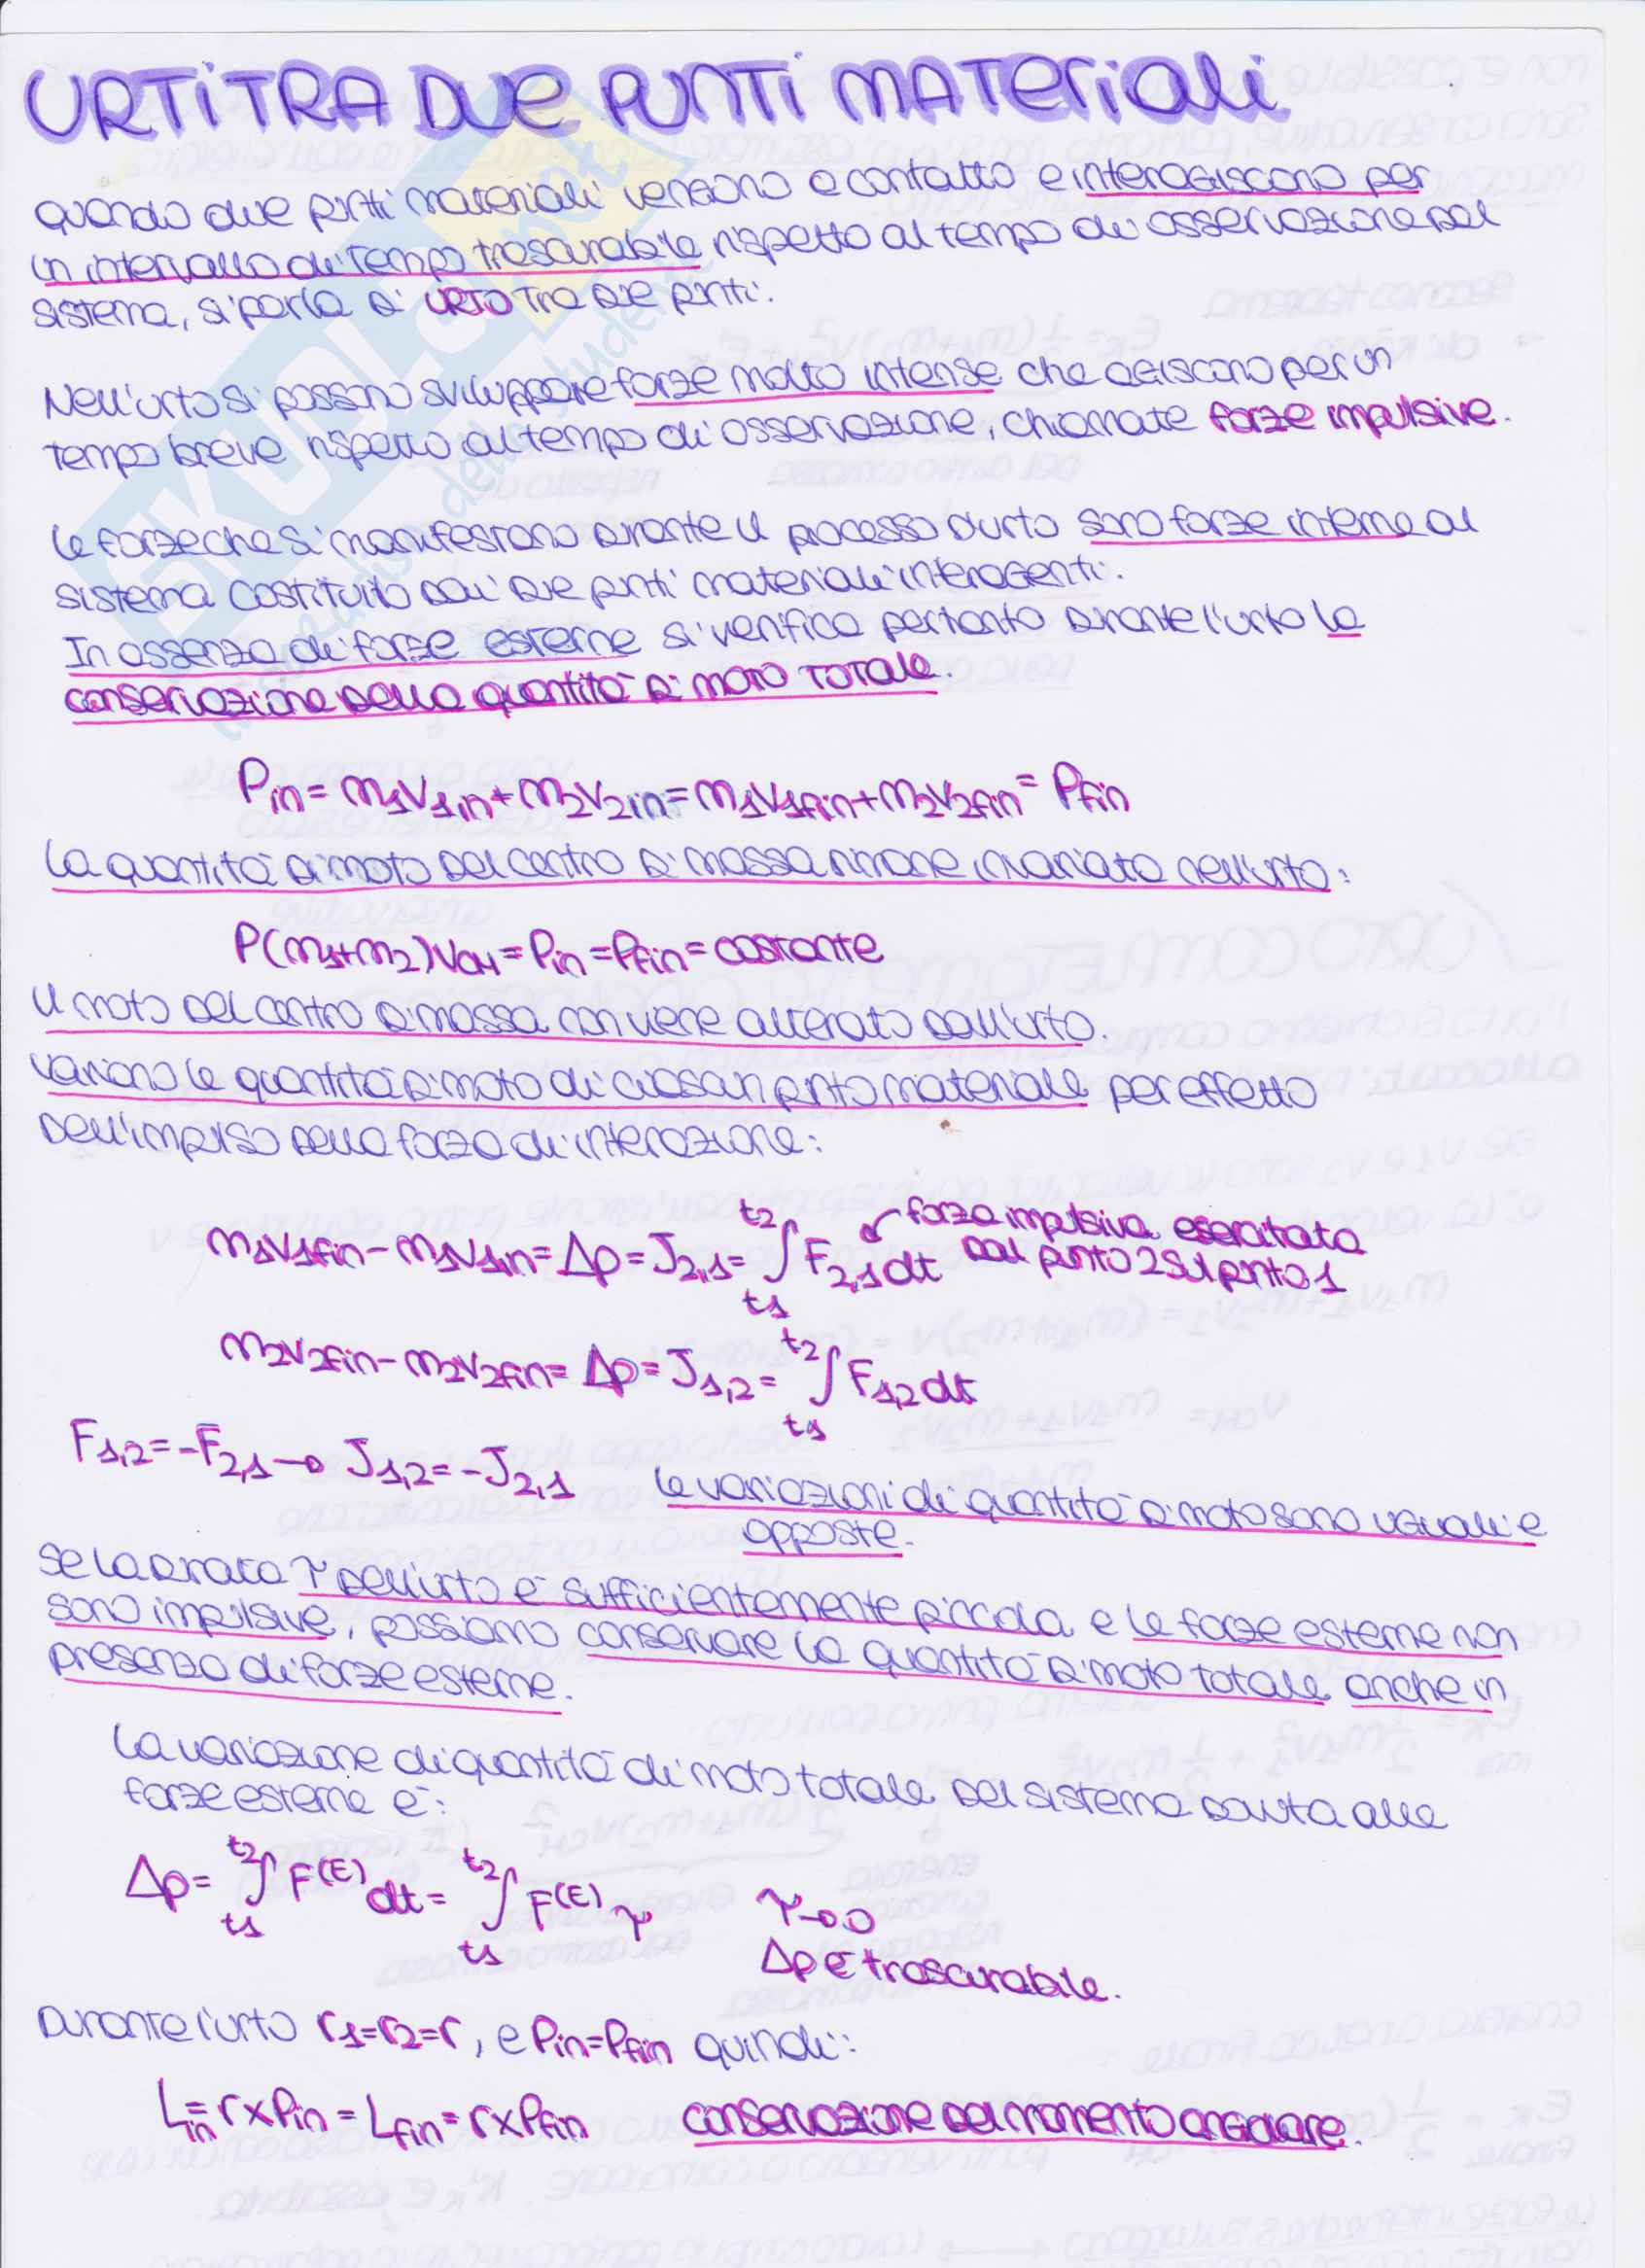 URTI TRA DUE PUNTI MATERIALI
quando due punti materiali vengono a contatto e interagiscono per
un intervallo di tempo trascurabile rispetto al tempo di osservazione del
sistema, si parla di URTO tra due punti.
Nell'urto si possono sviluppare forze molto intense che agiscono per un
tempo breve rispetto al tempo di osservazione, chiamate forze impulsive.
Le forze che si manifestano durante il processo d'urto sono forze interne al
sistema costituito dai due punti materiali interagenti.
In assenza di forze esterne si verifica pertanto durante l'urto la
conservazione della quantità di moto TOTALE.
Pin = m1v1in + m2v2in = m1v1fin + m2v2fin = Pfin
La quantità di moto del centro di massa rimane invariato nell'urto:
P(m1+m2)vCM = Pin = Pfin = costante
Il moto del centro di massa non viene alterato dall'urto.
Variano le quantità di moto di ciascun punto materiale per effetto
dell'impulso della forza di interazione:
m1v1fin - m1v1in = Δp = J2,1 = ∫t1t2 F2,1 dt forza impulsiva esercitata
dal punto 2 sul punto 1
m2v2fin - m2v2fin = Δp = J1,2 = ∫t1t2 F1,2 dt
F1,2 = -F2,1 → J1,2 = -J2,1 Le variazioni di quantità di moto sono uguali e
opposte.
Se la durata τ dell'urto è sufficientemente piccola e le forze esterne non
sono impulsive, possiamo conservare la quantità di moto totale anche in
presenza di forze esterne.
La variazione di quantità di moto totale del sistema dovuta alle
forze esterne è:
Δp = ∫t1t2 F(E) dt = ∫t1t2 F(E) τ τ→0
Δp è trascurabile.
Durante l'urto r1=r2=r, e Pin=Pfin quindi:
Lin = r x Pin = Lfin = r x Pfin conservazione del momento angolare.
SKUOLA.net